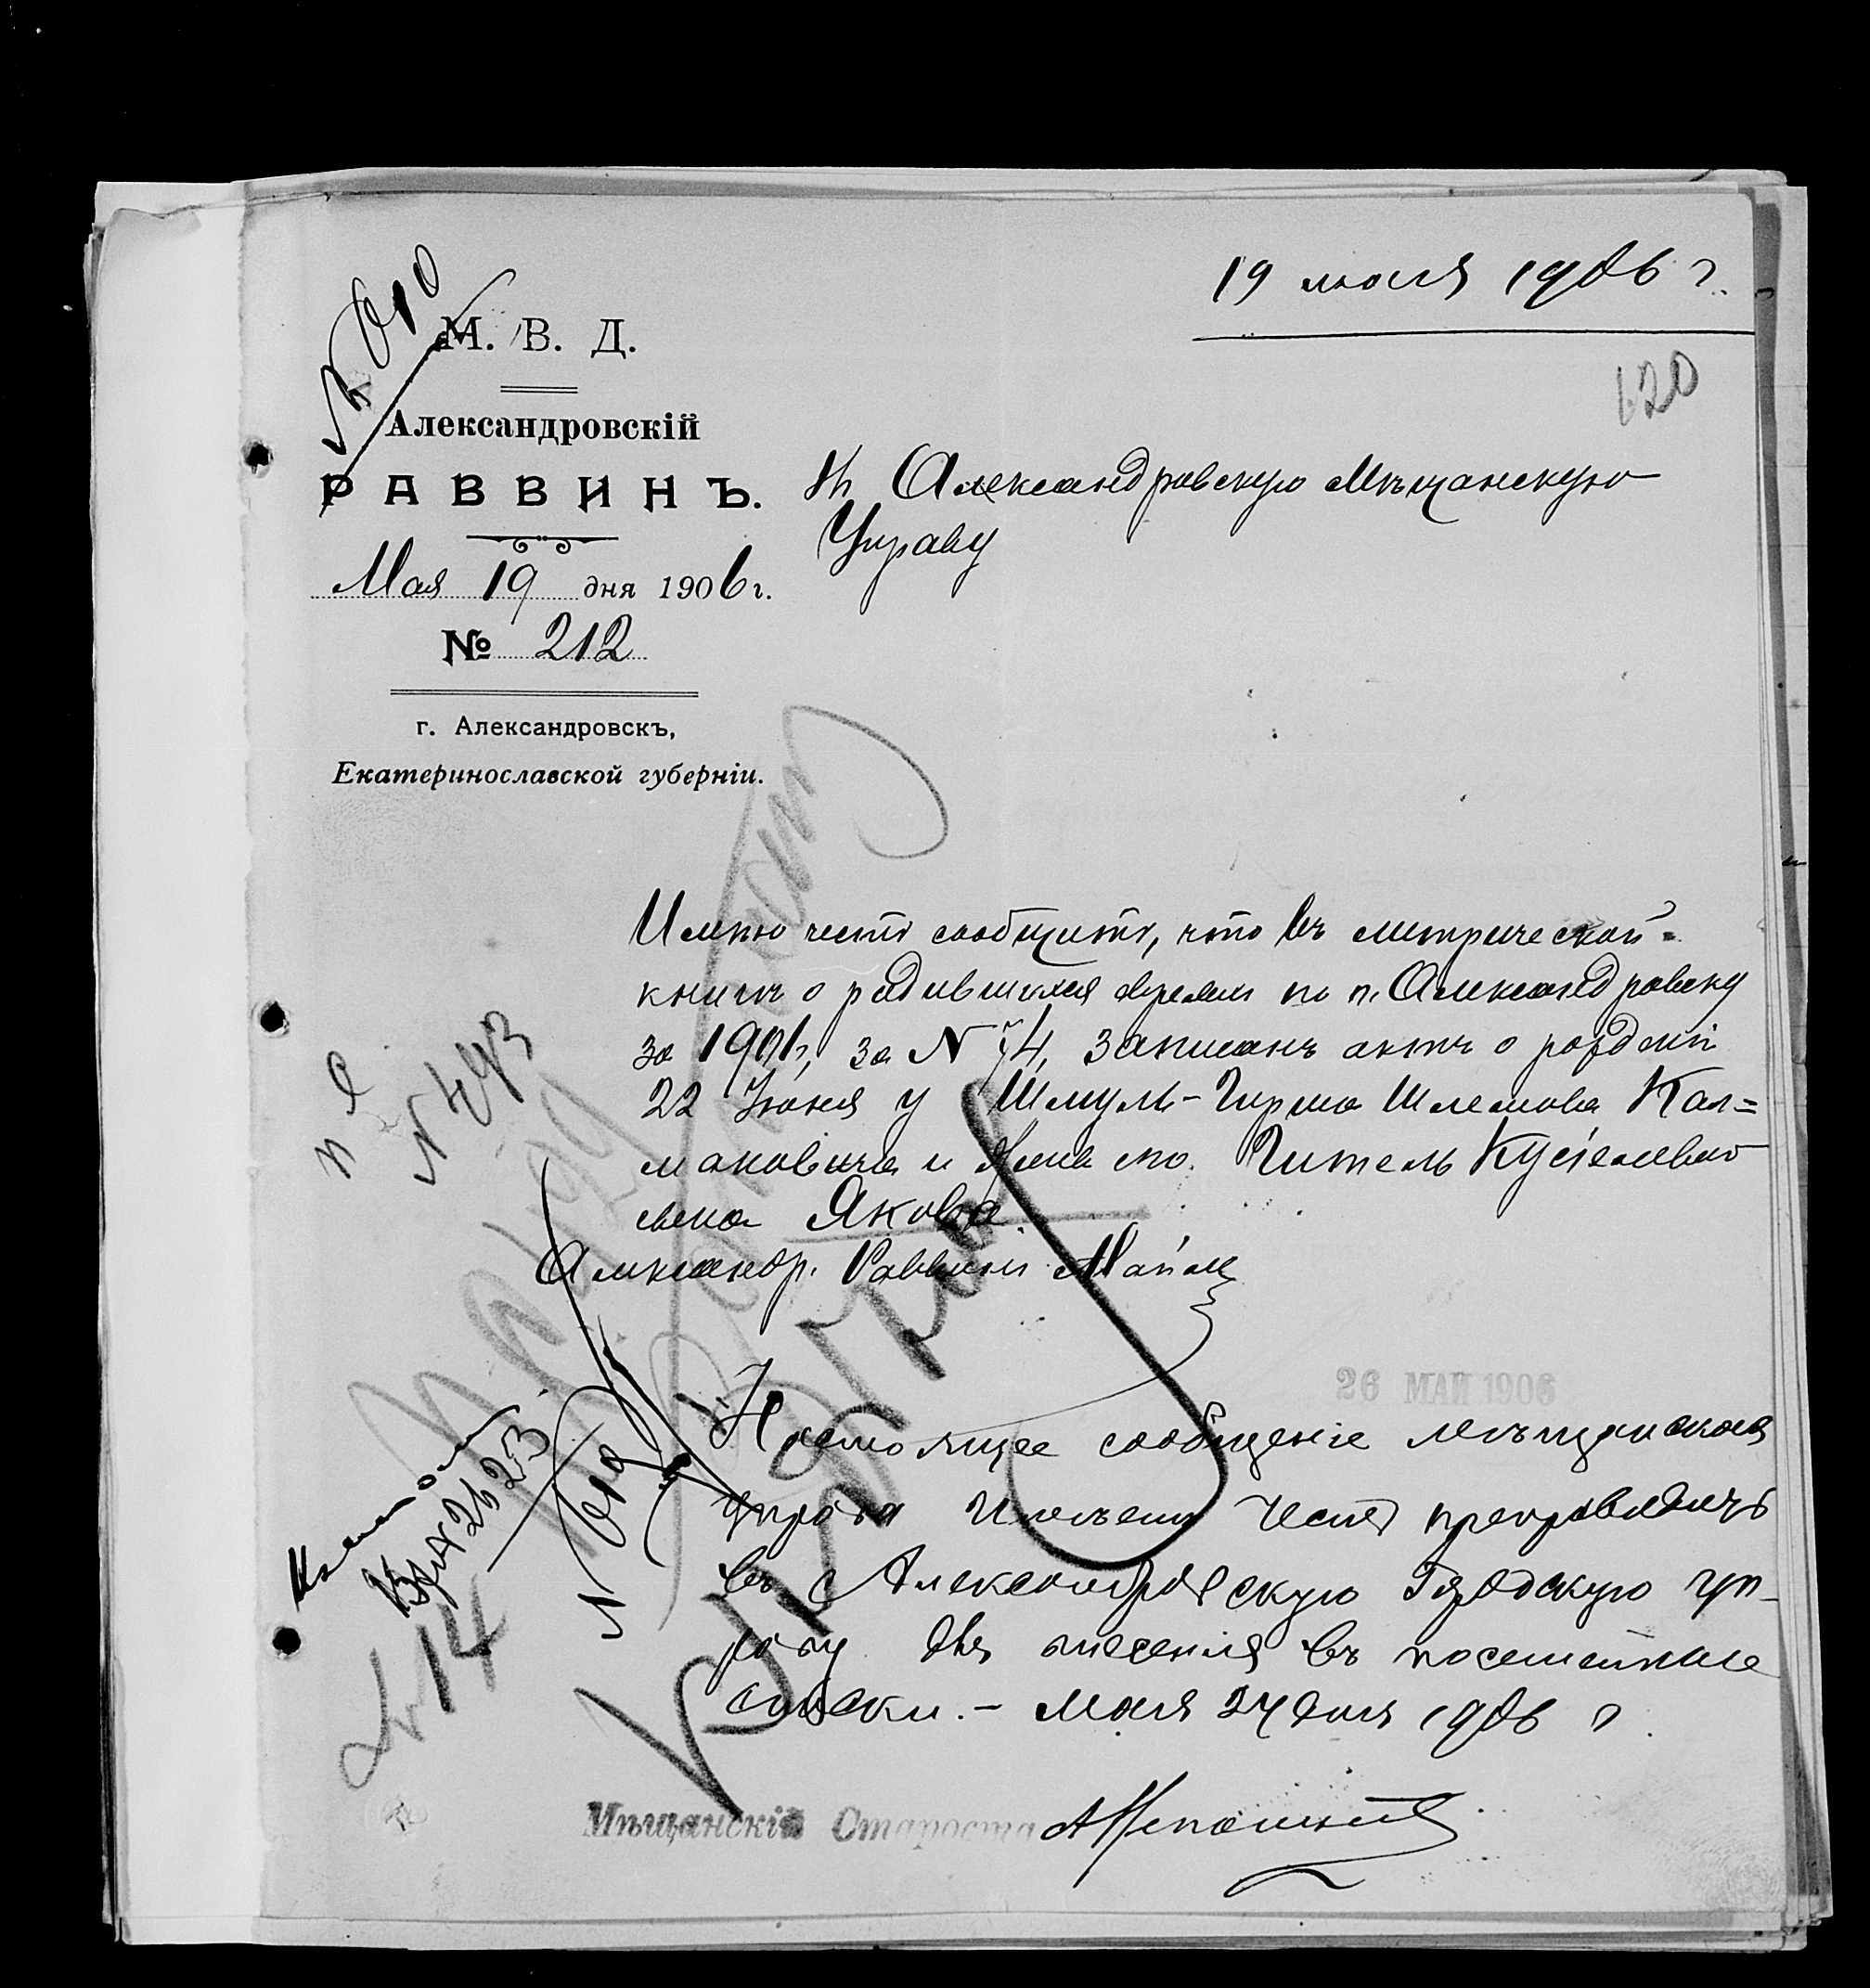 19 мая 1906 г.
120
№ 610
М. В. Д.
Александровскій
РАВВИНЪ.
Мая 19 дня 1906 г.
№ 212
г. Александровскъ,
Екатеринославской губерніи.
Въ Александровскую Мѣщанскую
Управу
Имѣю честь сообщить, что въ метрической
книгѣ о родившихся евреяхъ по г. Александровску
за 1901 г., за № 74, записанъ актъ о рожденіи
22 Іюня у Шмуль-Гирша Шлемова Кал=
мановича и жены его Гитель
сына Якова.
Александр. Раввинъ
26 МАЙ 1906
Настоящее сообщеніе мѣщанская
управа имѣетъ честь препроводить
въ Александровскую Городскую Уп-
раву для внесенія въ посемейные
списки. – Мая 24 дня 1906 г.
Мѣщанскій Староста
№ 493
№ 610
№ 14